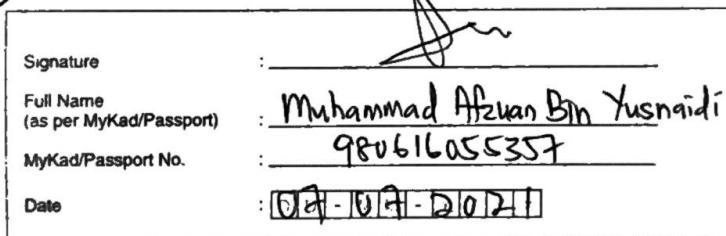 Signature :
Full Name
(as per MyKad/Passport) : Muhammad Afzuan Bin Yusnaidi
MyKad/Passport No. : 980616055357
Date : 07-07-2021